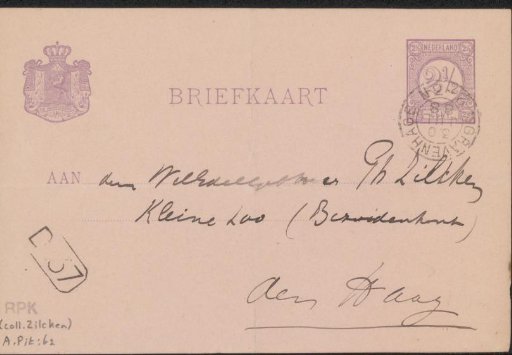 NEDERLAND
2½
BRIEFKAART
GRAVENHAGE
AAN den WelEdelgeboren Heer Ph Zilcken
Kleine Loo (Bezuidenhout)
den Haag
57
RPK
(coll. Zilcken)
A. Pit: 62